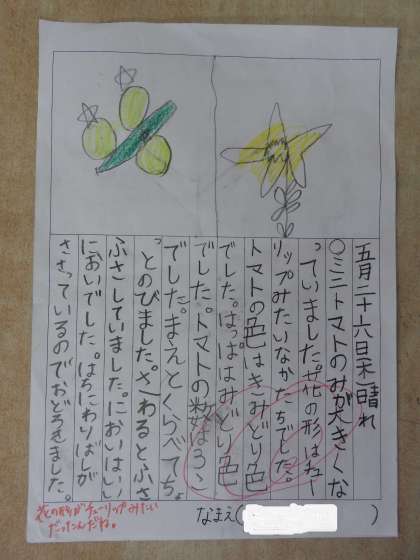 五月二十六日(木)晴れ
○ミニトマトのみが大きくな
っていました。花の形はチュー
リップみたいなかたちでした。
トマトの色はきみどり色
でした。はっぱはみどり色
でした。トマトの数は3こ
でした。まえとくらべてちょ
っとのびました。さわるとふさ
ふさしていました。においはいい
においでした。はちにわりばしが
ささっているのでおどろきました。
花の形がチューリップみたい
だったんだね。
なまえ( )